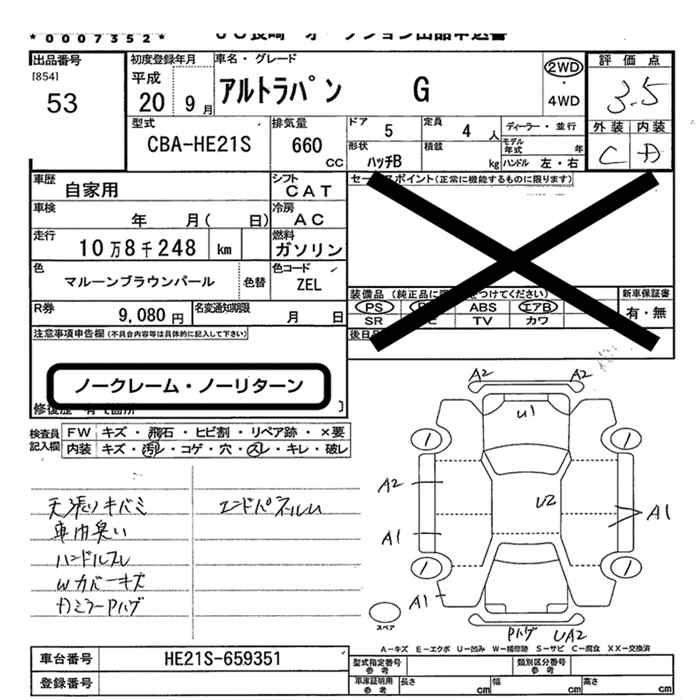 *0007352*
出品番号
[854]
53
初度登録年月
平成
20 9月
車名・グレード
アルトラパン G
2WD
・
4WD
評価点
3.5
外装 内装
C A
型式
CBA-HE21S
排気量
660
CC
ドア 5
定員 4 人
ディーラー・並行
形状
ハッチB
積載
kg
モデル年式 年
ハンドル 左・右
車歴 自家用
シフト CAT
車検 年 月( 日)
冷房 AC
走行 10万8千248 km
燃料 ガソリン
色 マルーンブラウンパール
色替
色コード
ZEL
R券 9,080円
名変通知期限 月 日
セー スポイント(正常に機能するものに限ります)
装備品 (純正品に つけてください)
PS ABS エアB
SR TV カワ
新車保証書
有・無
後日
注意事項申告欄(不具合内容等は具体的に記入して下さい)
ノークレーム・ノーリターン
検査員
記入欄
FW キズ・飛石・ヒビ割・リペア跡・×要
内装 キズ・汚レ・コゲ・穴・スレ・キレ・破レ
天張りキバミ
車内臭い
ハンドルスレ
Wカバーキズ
カミラーPハゲ
エンドパネルU
A2 A2
U1
A2
U2
A1
A1
A1
1
1
1
1
スペア
Pハゲ UA2
A−キズ E−エクボ U−凹み W−補修跡 S−サビ C−腐食 XX−交換済
車台番号 HE21S-659351
登録番号
型式指定番号
参考
類別区分番号
参考
車庫証明用
参考
長さ cm
幅 cm
高さ cm